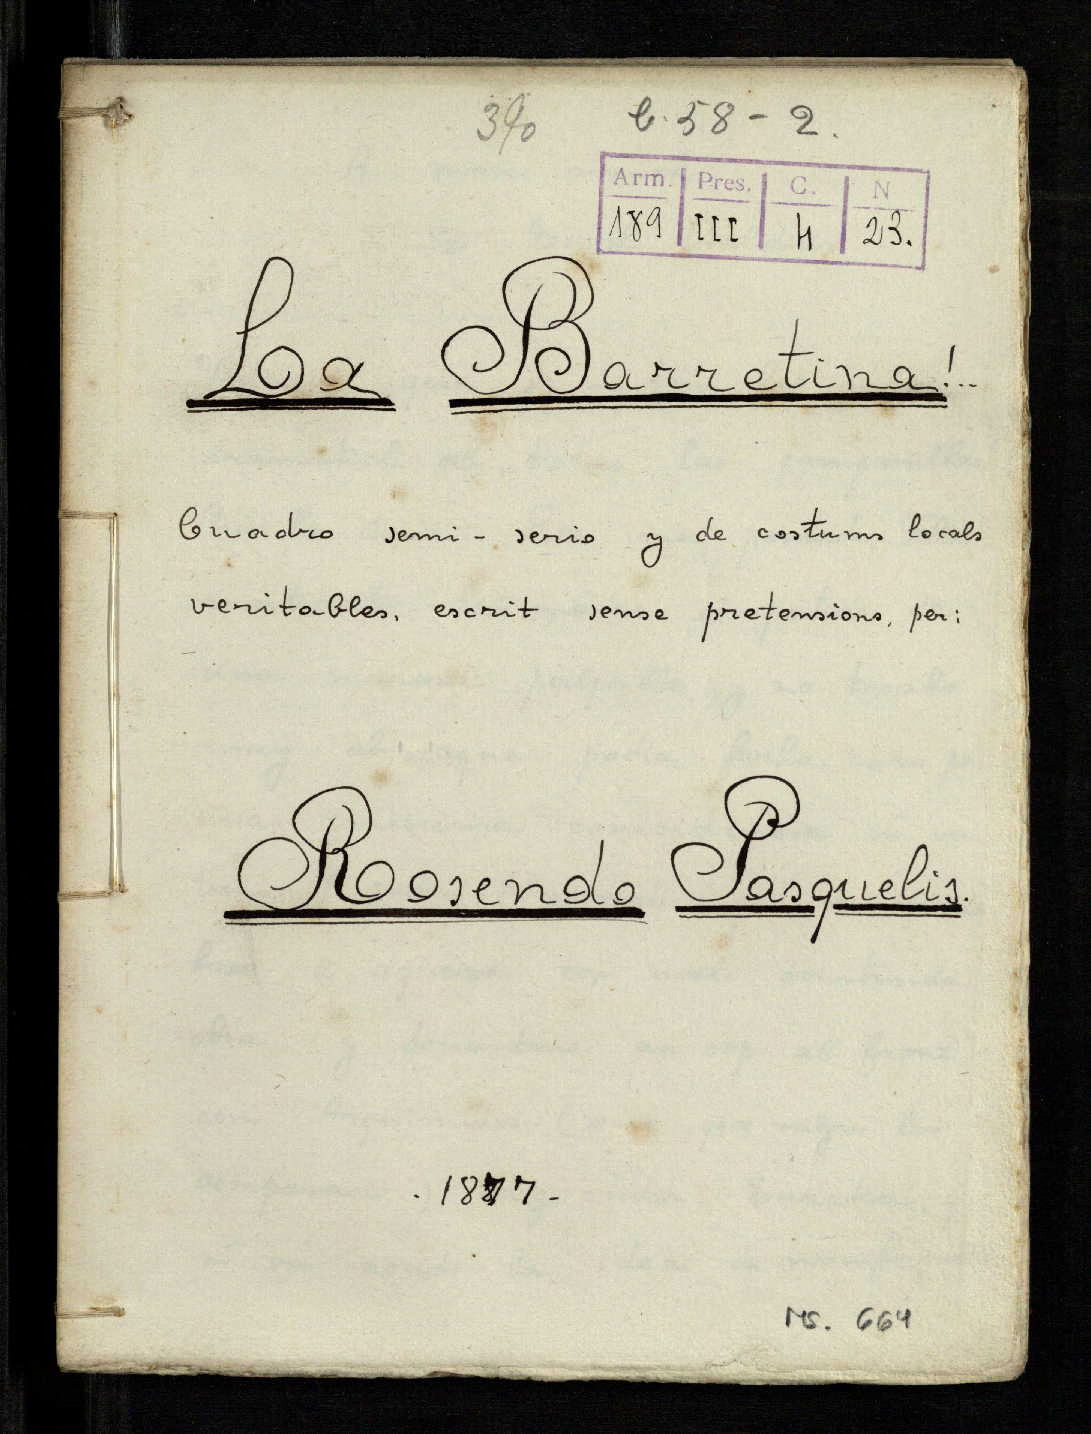 C. 58 - 2.
Arm. Pres. C. N
189 III 4 23.
La Barretina!..
Cuadro semi-serio y de costums locals
veritables, escrit sense pretensions, per:
Rosendo Pasquelis.
. 1877 -
Ms. 664